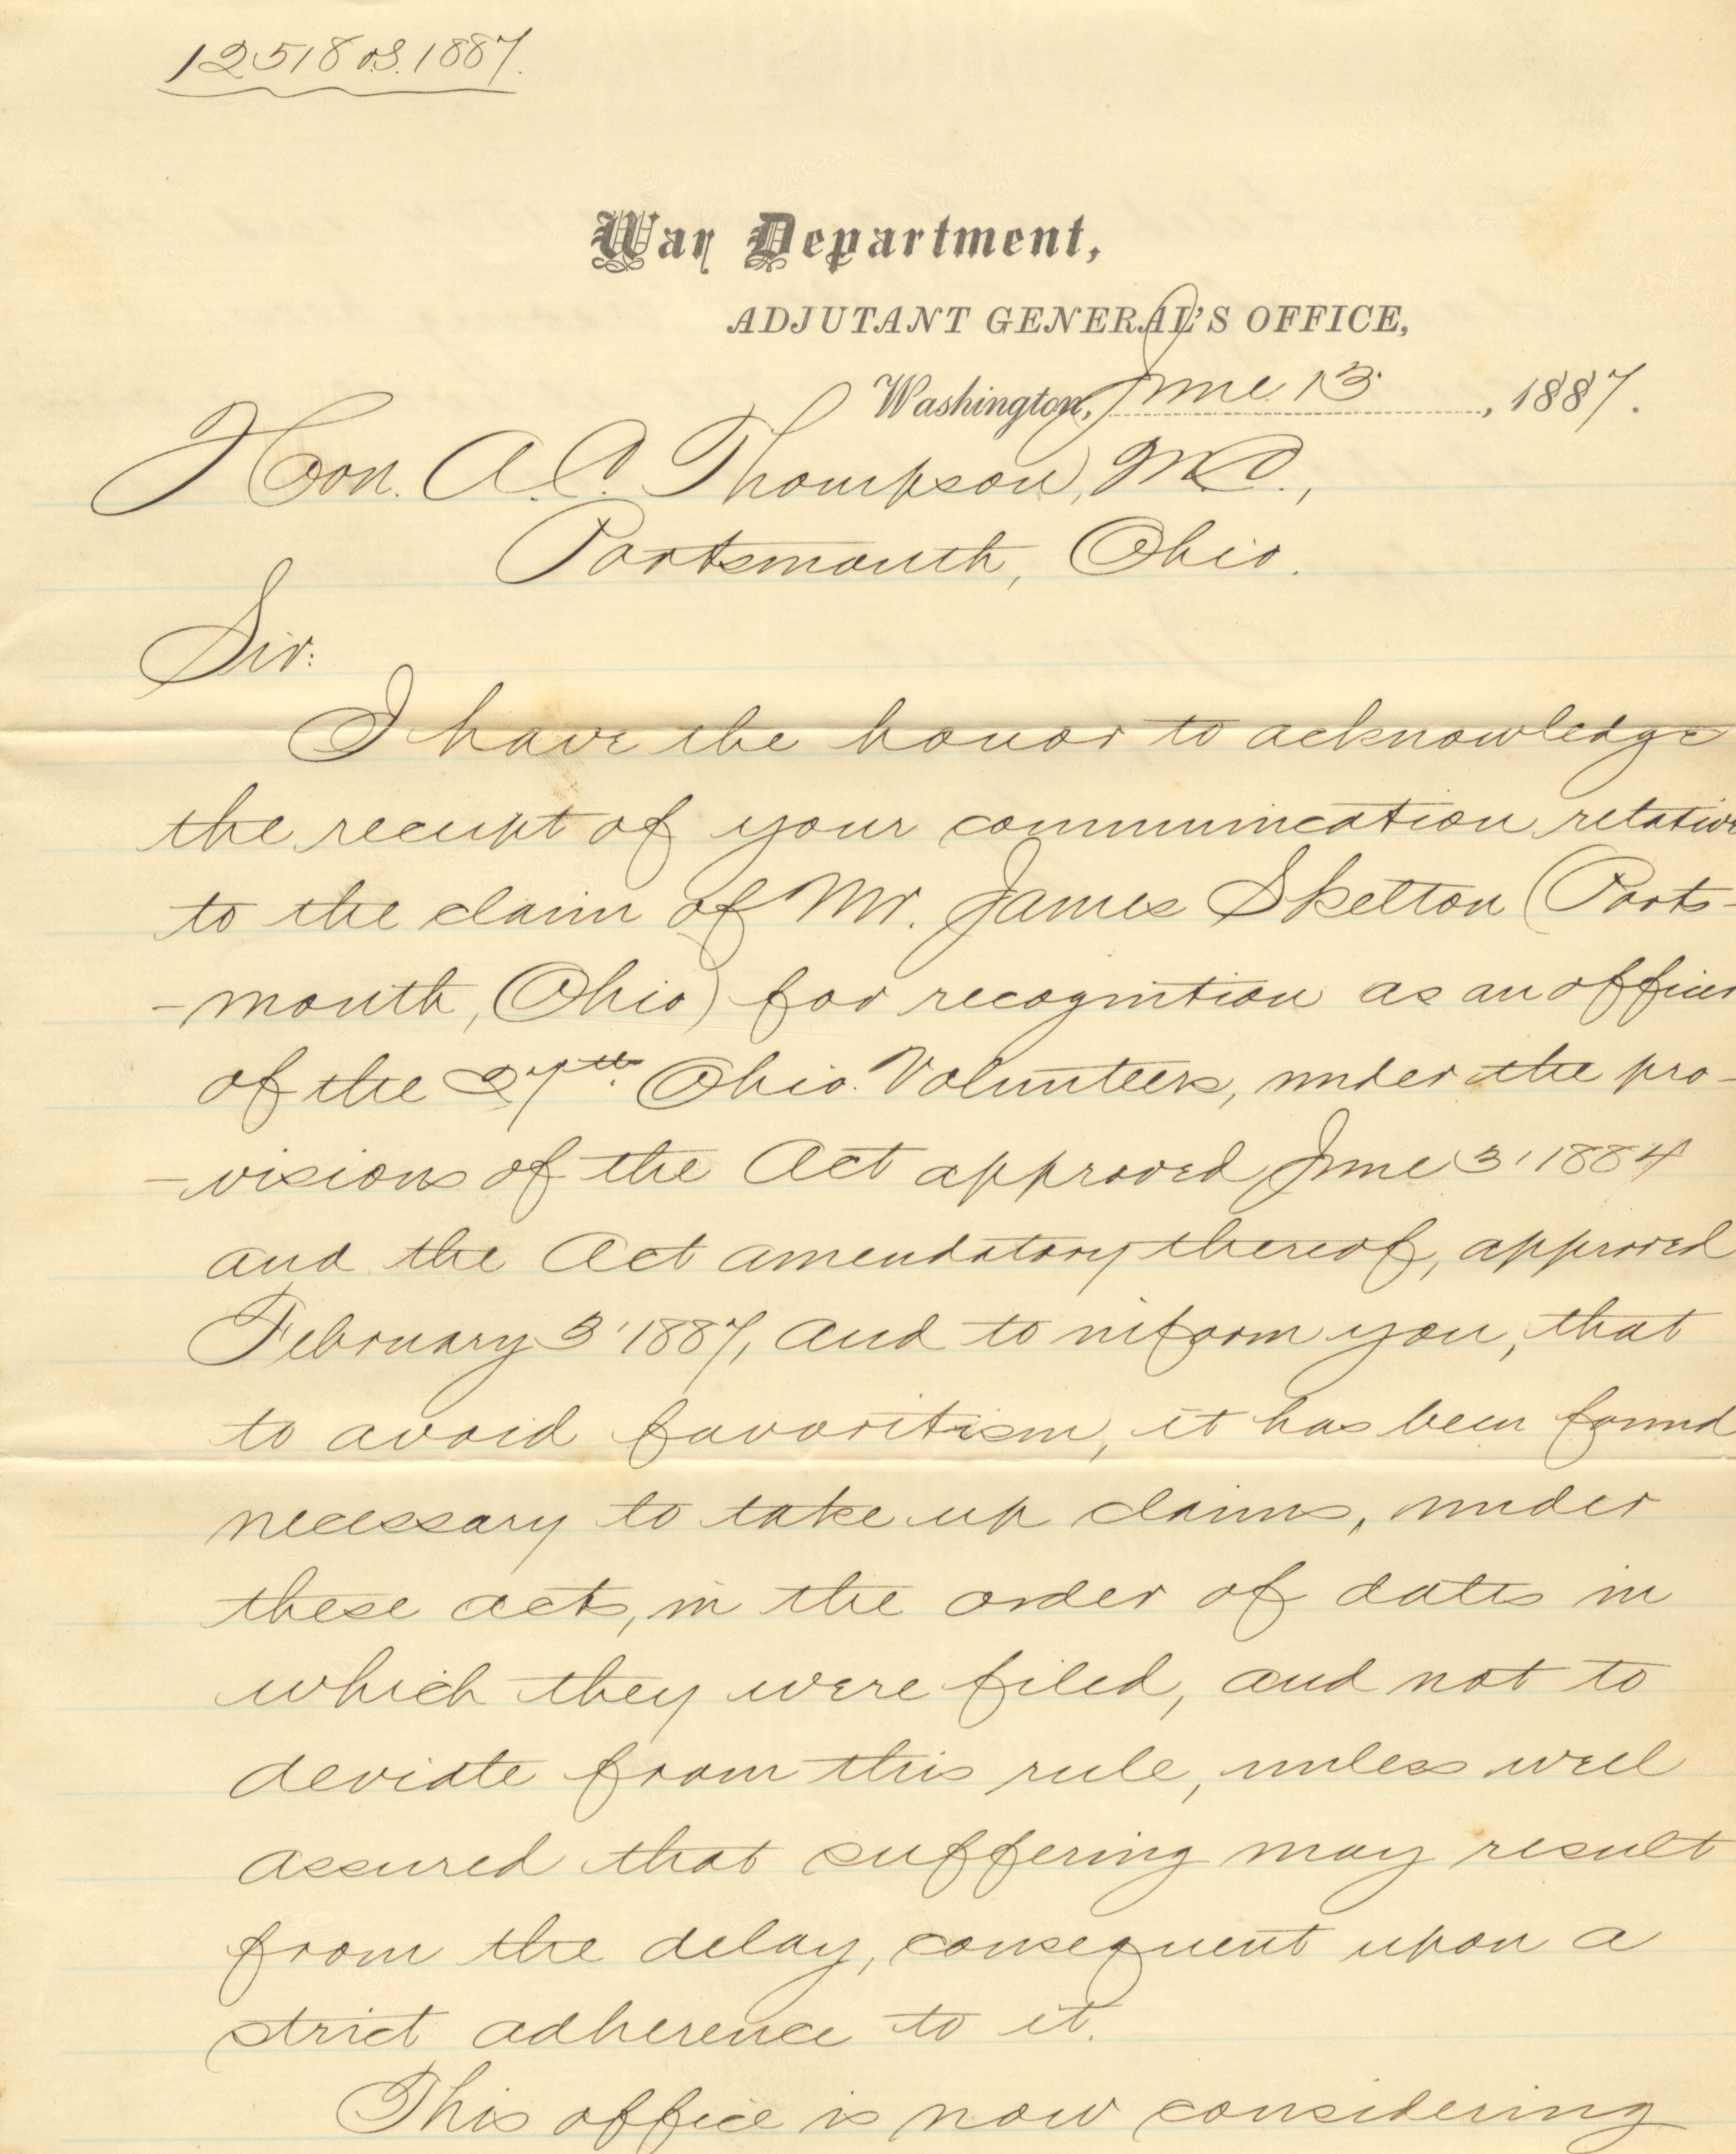 12518 O.S. 1887.
War Department,
ADJUTANT GENERAL'S OFFICE,
Washington, June 13, 1887.
Hon. A. C. Thompson, M.C.,
Portsmouth, Ohio.
Sir:
I have the honor to acknowledge
the receipt of your communication relative
to the claim of Mr. James Skelton (Ports-
-mouth, Ohio) for recognition as an officer
of the 27th. Ohio Volunteers, under the pro-
-visions of the Act approved June 3, 1884
and the Act amendatory thereof, approved
February 3, 1887, and to inform you, that
to avoid favoritism, it has been found
necessary to take up claims, under
these acts, in the order of dates in
which they were filed, and not to
deviate from this rule, unless well
assured that suffering may result
from the delay, consequent upon a
strict adherence to it.
This office is now considering